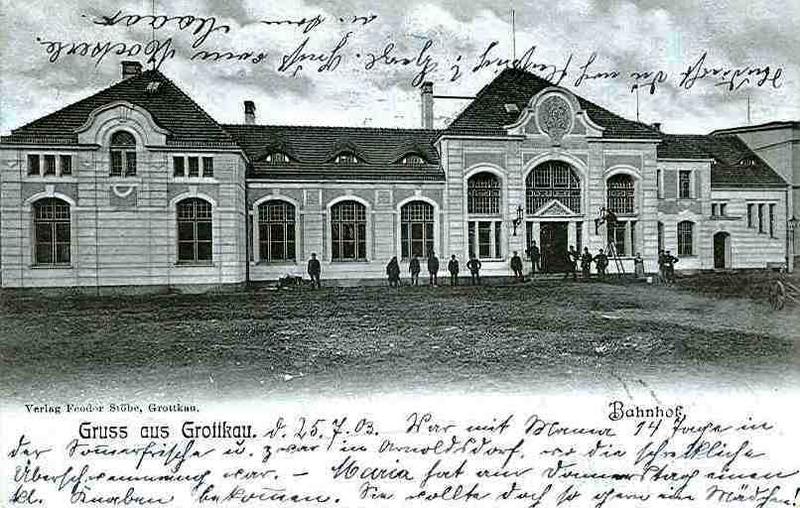 Verlag Feodor Stöbe, Grottkau.
Bahnhof.
Gruss aus Grottkau. d. 25.7.03. War mit Mama 14 Tage in
der Sommerfrische u. zwar in Arnoldsdorf, wo die schreckliche
Überschwemmung war. – Maria hat am Donnerstag einen
kl. Knaben bekommen. Sie wollte doch so gern ein Mädchen!
Du noch ? Herzl. Gruss